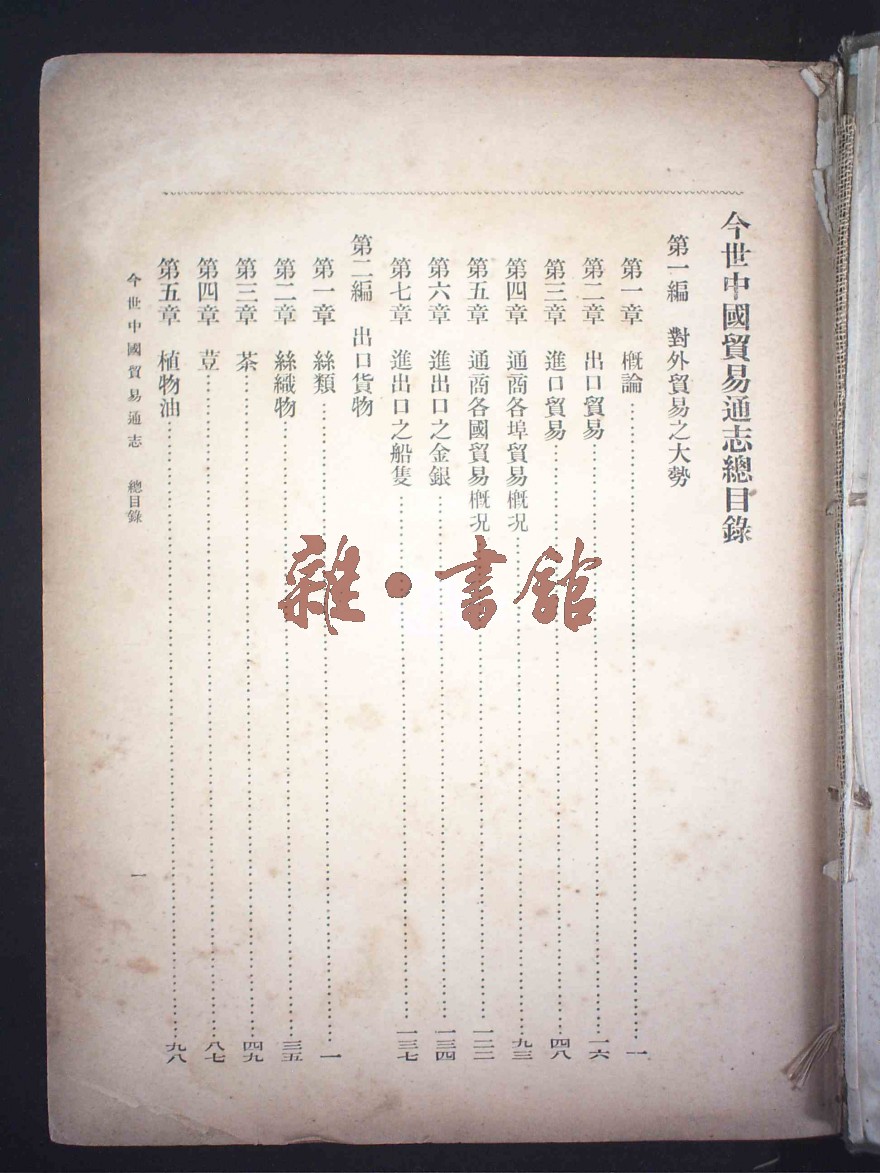 今世中國貿易通志總目錄
第一編 對外貿易之大勢
第一章 概論……一
第二章 出口貿易……一六
第三章 進口貿易……四八
第四章 通商各埠貿易概况……九三
第五章 通商各國貿易概况……一二二
第六章 進出口之金銀……一三四
第七章 進出口之船隻……一三七
第二編 出口貨物
第一章 絲類……一
第二章 絲織物……三五
第三章 茶……四九
第四章 荳……八七
第五章 植物油……九八
今世中國貿易通志 總目錄 一
雜·書館